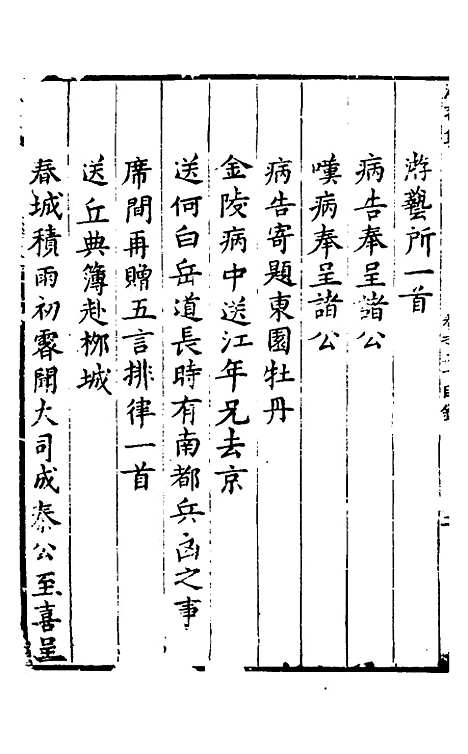 游藝所一首
病告奉呈諸公
嘆病奉呈諸公
病告寄題東園牡丹
金陵病中送江年兄去京
送何白岳道長時有南都兵卤之事
席間再贈五言排律一首
送丘典簿赴柳城
春城積雨初霽聞大司成秦公至喜呈